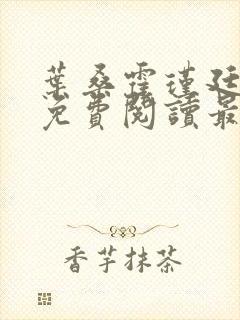 葉桑霍瑾廷
免費閱讀最
香芋抹茶